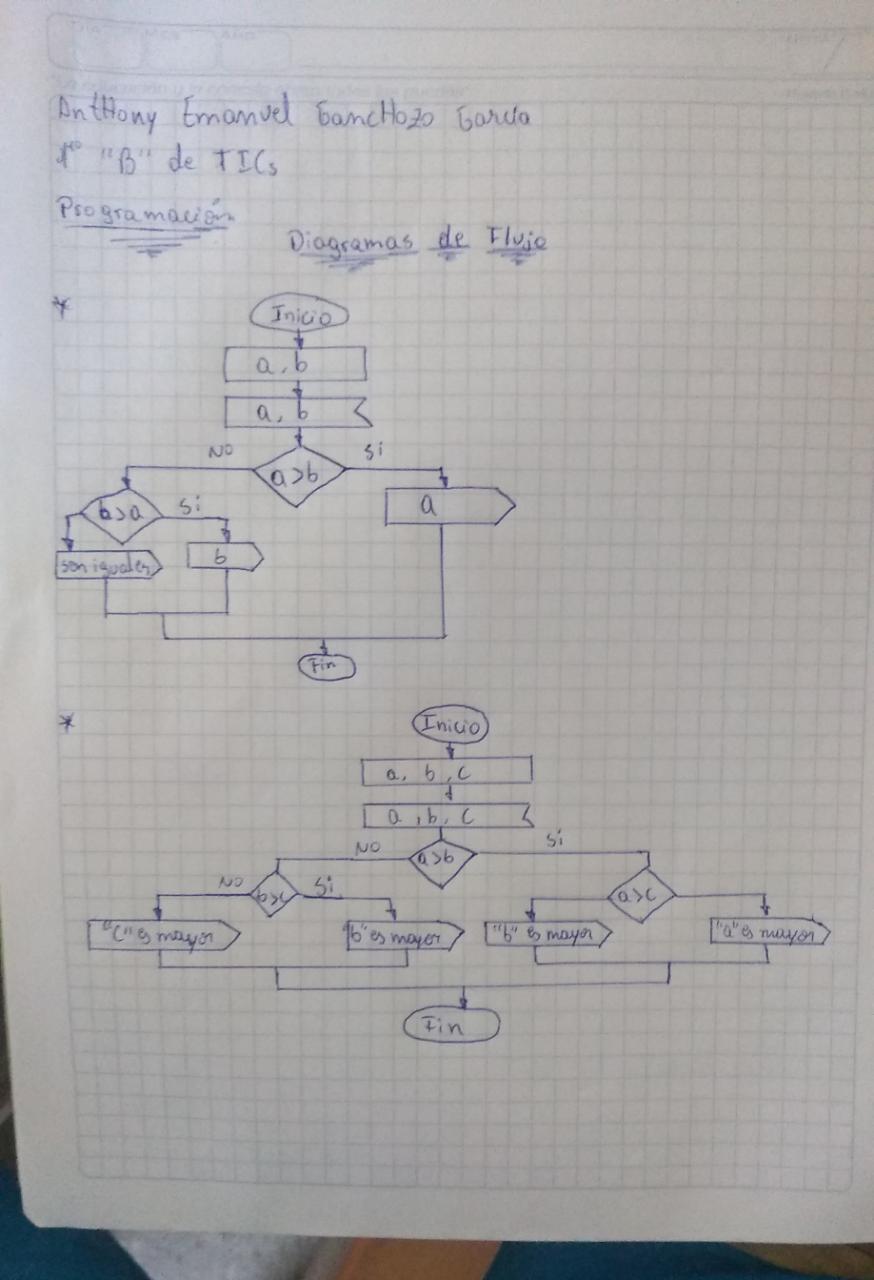 AntHony Emanuel GancHozo García
1ro "B" de TICs
Programación
Diagramas de Flujo
*
Inicio
a, b
a, b
NO
Si
a>b
b>a
Si
a
son iguales
b
Fin
*
Inicio
a, b, c
a, b, c
NO
a>b
Si
NO
b>c
Si
a>c
"C" es mayor
"b" es mayor
"b" es mayor
"a" es mayor
Fin